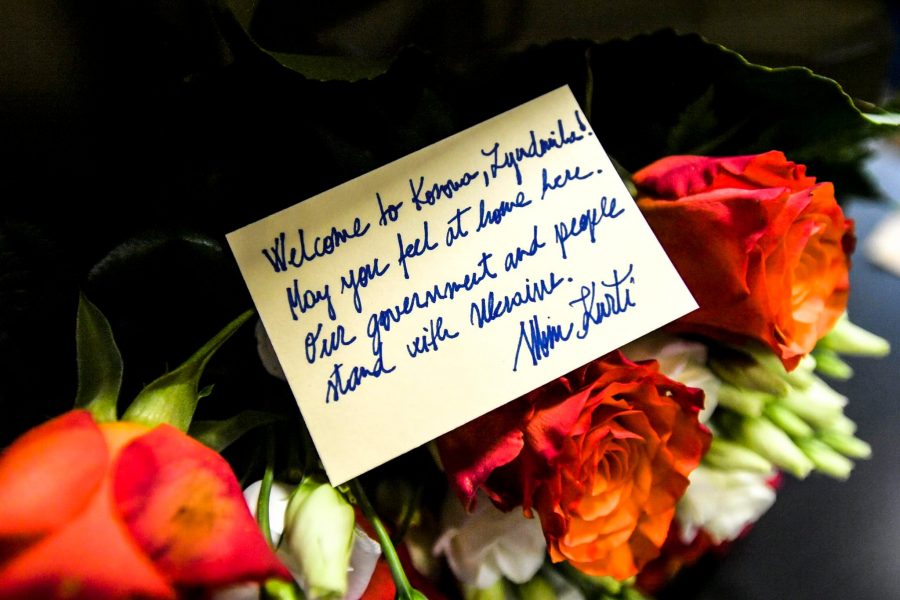 Welcome to Kosova, Lyudmila!
May you feel at home here.
Our government and people
stand with Ukraine.
Albin Kurti